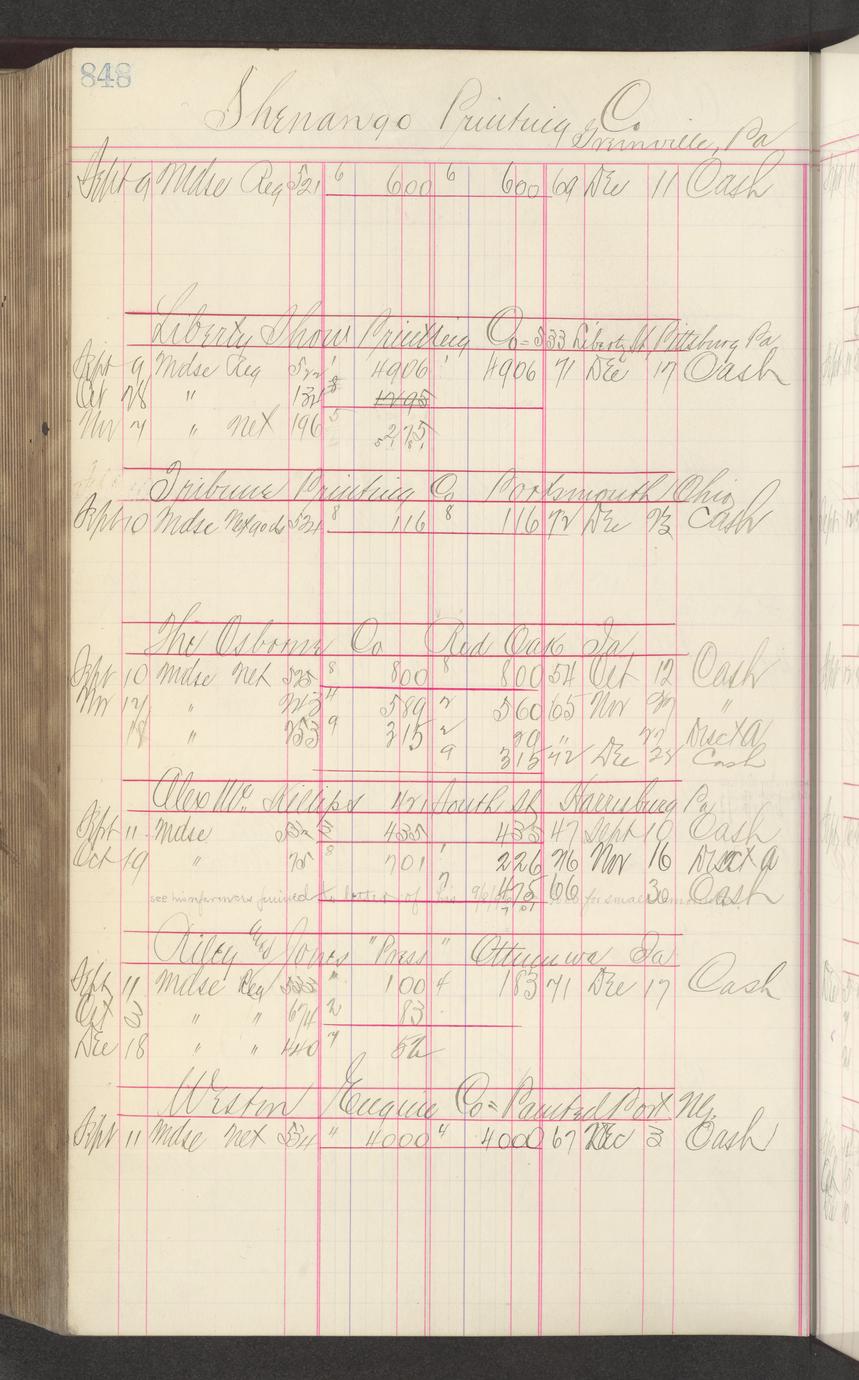 848
Shenango Printing Co
Greenville, Pa
Sept 9 Mdse Reg 521 6 600 6 600 69 Dec 11 Cash
Liberty Show Printing Co = 533 Liberty St, Pittsburg Pa
Sept 9 Mdse Reg 522 1 4906 1 4906 71 Dec 17 Cash
Oct 28 " 132 1295
Nov 7 " net 196 5 275
Tribune Printing Co Portsmouth Ohio
Sept 10 Mdse Net gods 524 8 116 8 116 72 Dec 23 Cash
The Osborne Co Red Oak Ia
Sept 10 Mdse Net 525 8 800 8 800 54 Oct 12 Cash
Nov 12 " 243 4 589 2 560 65 Nov 27 "
18 " 253 9 315 2 29 " 27 Disct a
9 315 72 Dec 28 Cash
Alex Mc Killips 421 South St Harrisburg Pa
Sept 11 Mdse 435 435 47 Sept 10 Cash
Oct 19 " 75 8 701 1 226 76 Nov 16 Disct a
7 475 66 30 Cash
see to letter of his for small
Riley and Jones "Press" Ottumwa Ia
Sept 11 Mdse Reg " 100 4 183 71 Dec 17 Cash
Oct 3 " " 674 2 83
Dec 18 " " 440 7 52
Weston Engine Co = Painted Post Ny.
Sept 11 Mdse Net 534 " 4000 4 4000 67 Dec 3 Cash